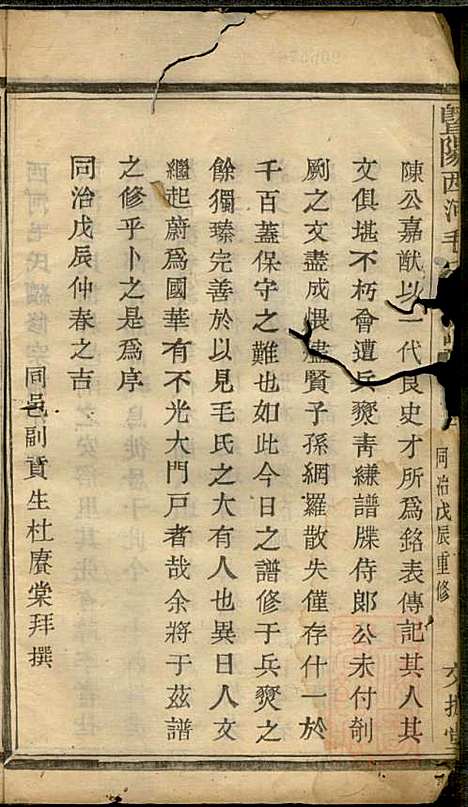 暨陽西河毛氏
同治戊辰重修
陳公嘉猷以一代良史才所爲銘表傳記其人其
文俱堪不朽會遭兵燹靑縑譜牒侍郞公未付剞
劂之文盡成煨燼賢子孫網羅散失僅存什一於
千百蓋保守之難也如此今日之譜修于兵燹之
餘獨臻完善於以見毛氏之大有人也異日人文
繼起蔚爲國華有不光大門戸者哉余將于茲譜
之修乎卜之是爲序
同治戊辰仲春之吉
同邑副貢生杜賡棠拜撰